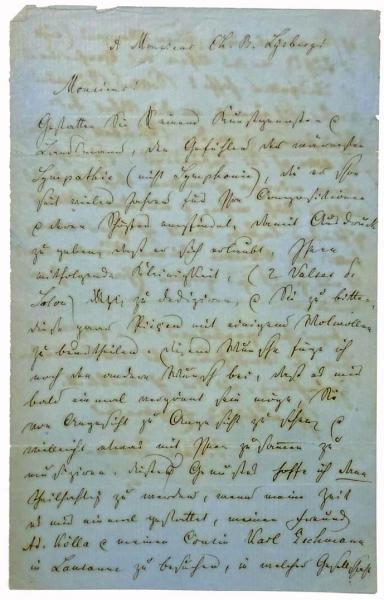 A Monsieur Ch. B. Lysberg!
Monsieur!
Gestatten Sie Ihrem Kunstgenossen &
Landsmann, den Gefühlen der wärmsten
Sympathie (nicht Symphonie), die er schon
seit vielen Jahren für Ihre Compositionen
& deren Schöpfer empfindet, damit Ausdruck
zu geben, daß er sich erlaubt, Ihnen
mitfolgende Kleinigkeit, (2 Valses de
Salon) zu dediziren, & Sie zu bitten,
diese zwei Piècen mit einigem Wolwollen
zu beurtheilen. Diesem Wunsche füge ich
noch den andern Wunsch bei, daß es mir
bald einmal vergönnt sein möge, Sie
von Angesicht zu Angesicht zu sehen, &
vielleicht etwas mit Ihnen zusammen zu
musiziren. Dieses Genusses hoffe ich dann
theilhaftig zu werden, wenn meine Zeit
es mir einmal gestattet, meinen Freund
Ad. Kölla & meinen Cousin Karl Eschmann
in Lausanne zu besuchen, in welcher Gesellschaft